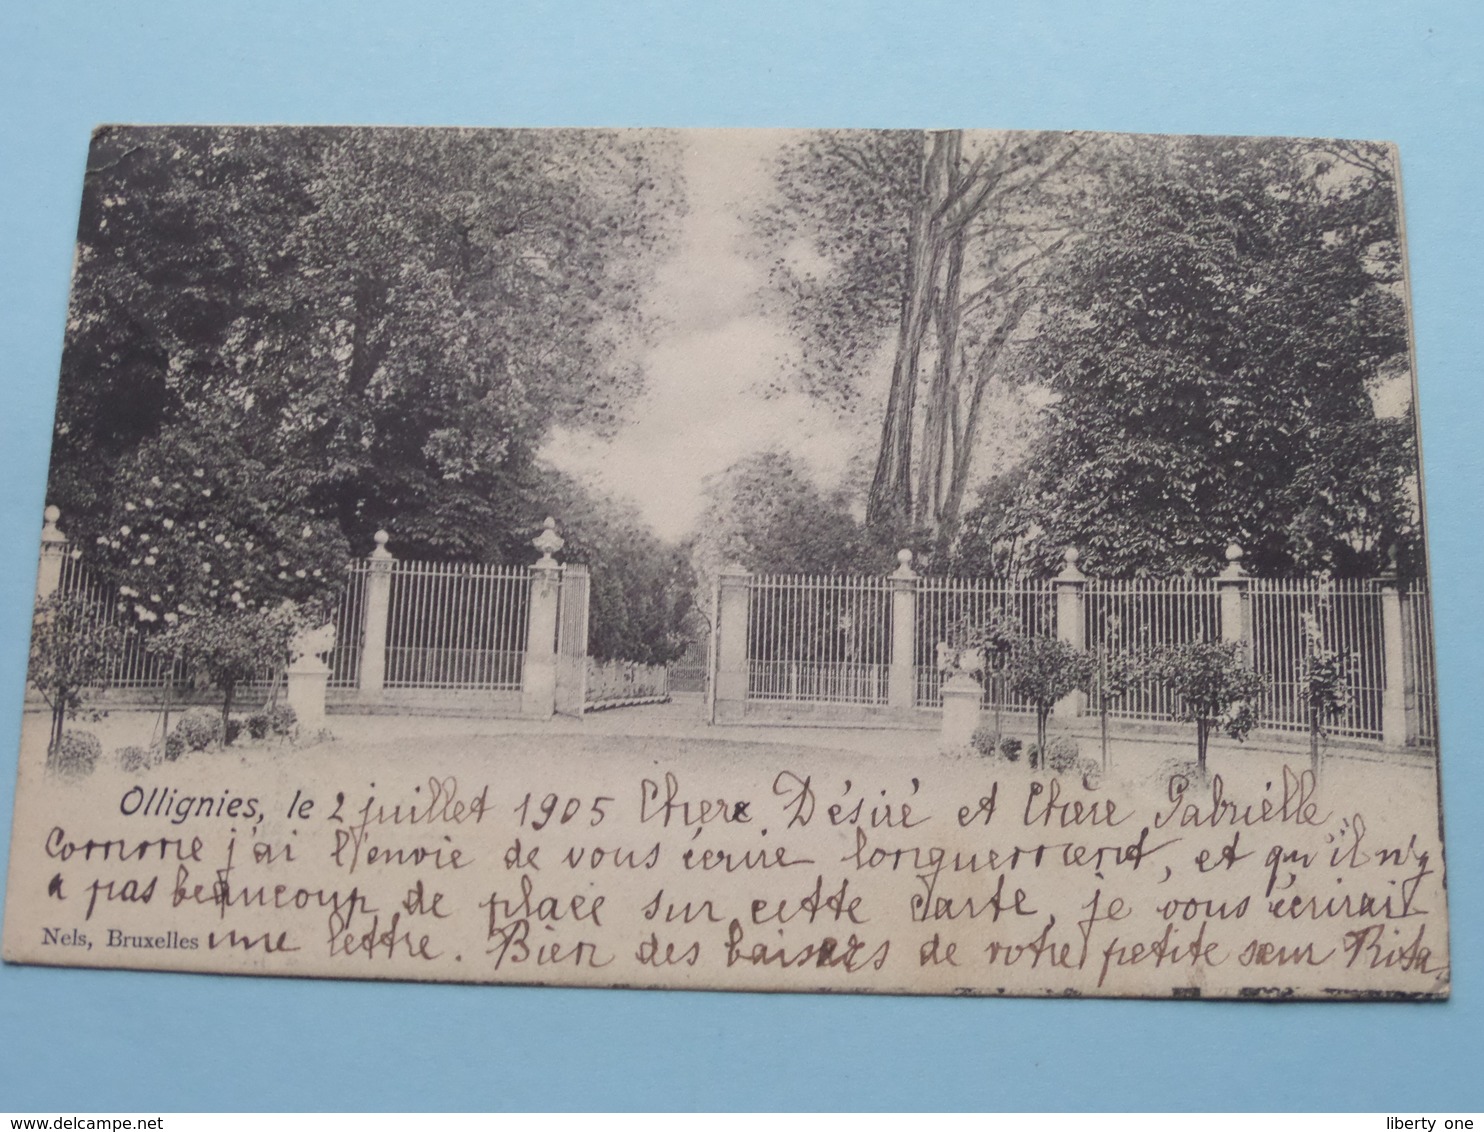 Ollignies, le 2 juillet 1905 Cher Désiré et Chère Gabriélle.
Comme j'ai l'envie de vous écrire longuement, et qu'il n'y
a pas beaucoup de place sur cette carte, je vous écrirai
Nels, Bruxelles une lettre. Bien des baisers de votre petite sœur Rita
delcampe.net
liberty one